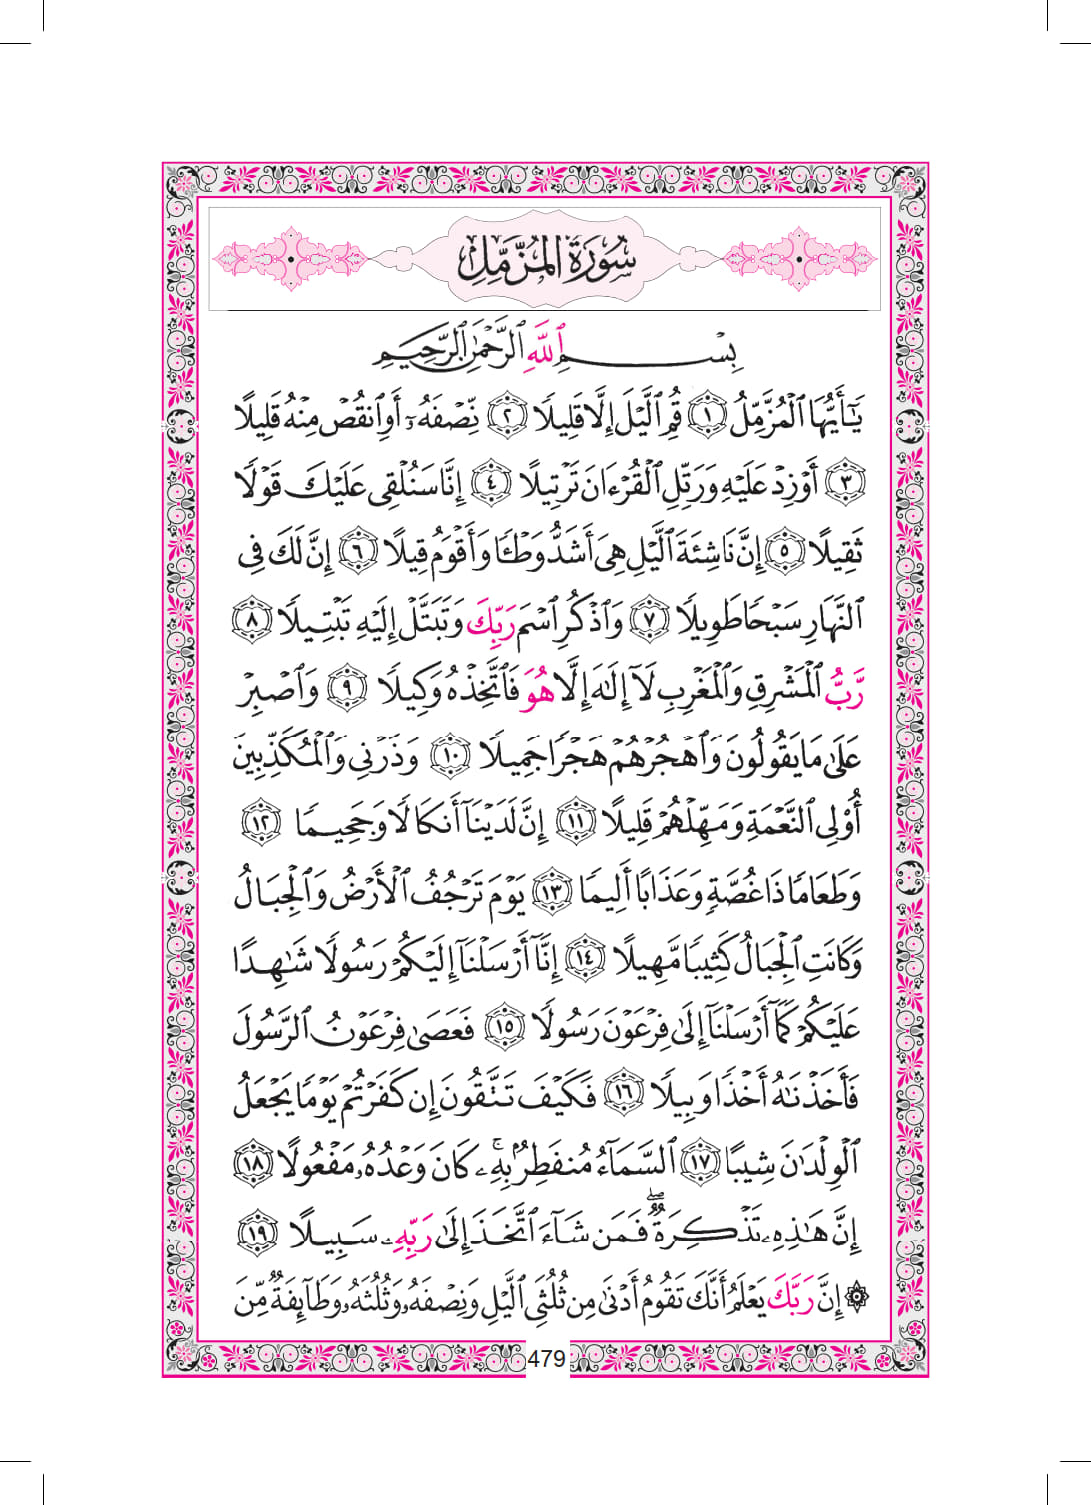 سُورَةُ الْمُزَّمِّلِ
بِسْمِ ٱللَّهِ ٱلرَّحْمَٰنِ ٱلرَّحِيمِ
يَٰٓأَيُّهَا ٱلْمُزَّمِّلُ ١ قُمِ ٱلَّيْلَ إِلَّا قَلِيلًا ٢ نِّصْفَهُۥٓ أَوِ ٱنقُصْ مِنْهُ قَلِيلًا
٣ أَوْ زِدْ عَلَيْهِ وَرَتِّلِ ٱلْقُرْءَانَ تَرْتِيلًا ٤ إِنَّا سَنُلْقِى عَلَيْكَ قَوْلًا
ثَقِيلًا ٥ إِنَّ نَاشِئَةَ ٱلَّيْلِ هِىَ أَشَدُّ وَطْـًٔا وَأَقْوَمُ قِيلًا ٦ إِنَّ لَكَ فِى
ٱلنَّهَارِ سَبْحًا طَوِيلًا ٧ وَٱذْكُرِ ٱسْمَ رَبِّكَ وَتَبَتَّلْ إِلَيْهِ تَبْتِيلًا ٨
رَّبُّ ٱلْمَشْرِقِ وَٱلْمَغْرِبِ لَآ إِلَٰهَ إِلَّا هُوَ فَٱتَّخِذْهُ وَكِيلًا ٩ وَٱصْبِرْ
عَلَىٰ مَا يَقُولُونَ وَٱهْجُرْهُمْ هَجْرًا جَمِيلًا ١٠ وَذَرْنِى وَٱلْمُكَذِّبِينَ
أُو۟لِى ٱلنَّعْمَةِ وَمَهِّلْهُمْ قَلِيلًا ١١ إِنَّ لَدَيْنَآ أَنكَالًا وَجَحِيمًا ١٢
وَطَعَامًا ذَا غُصَّةٍ وَعَذَابًا أَلِيمًا ١٣ يَوْمَ تَرْجُفُ ٱلْأَرْضُ وَٱلْجِبَالُ
وَكَانَتِ ٱلْجِبَالُ كَثِيبًا مَّهِيلًا ١٤ إِنَّآ أَرْسَلْنَآ إِلَيْكُمْ رَسُولًا شَٰهِدًا
عَلَيْكُمْ كَمَآ أَرْسَلْنَآ إِلَىٰ فِرْعَوْنَ رَسُولًا ١٥ فَعَصَىٰ فِرْعَوْنُ ٱلرَّسُولَ
فَأَخَذْنَٰهُ أَخْذًا وَبِيلًا ١٦ فَكَيْفَ تَتَّقُونَ إِن كَفَرْتُمْ يَوْمًا يَجْعَلُ
ٱلْوِلْدَٰنَ شِيبًا ١٧ ٱلسَّمَآءُ مُنفَطِرٌۢ بِهِۦ ۚ كَانَ وَعْدُهُۥ مَفْعُولًا ١٨
إِنَّ هَٰذِهِۦ تَذْكِرَةٌ ۖ فَمَن شَآءَ ٱتَّخَذَ إِلَىٰ رَبِّهِۦ سَبِيلًا ١٩
۞ إِنَّ رَبَّكَ يَعْلَمُ أَنَّكَ تَقُومُ أَدْنَىٰ مِن ثُلُثَىِ ٱلَّيْلِ وَنِصْفَهُۥ وَثُلُثَهُۥ وَطَآئِفَةٌ مِّنَ
479